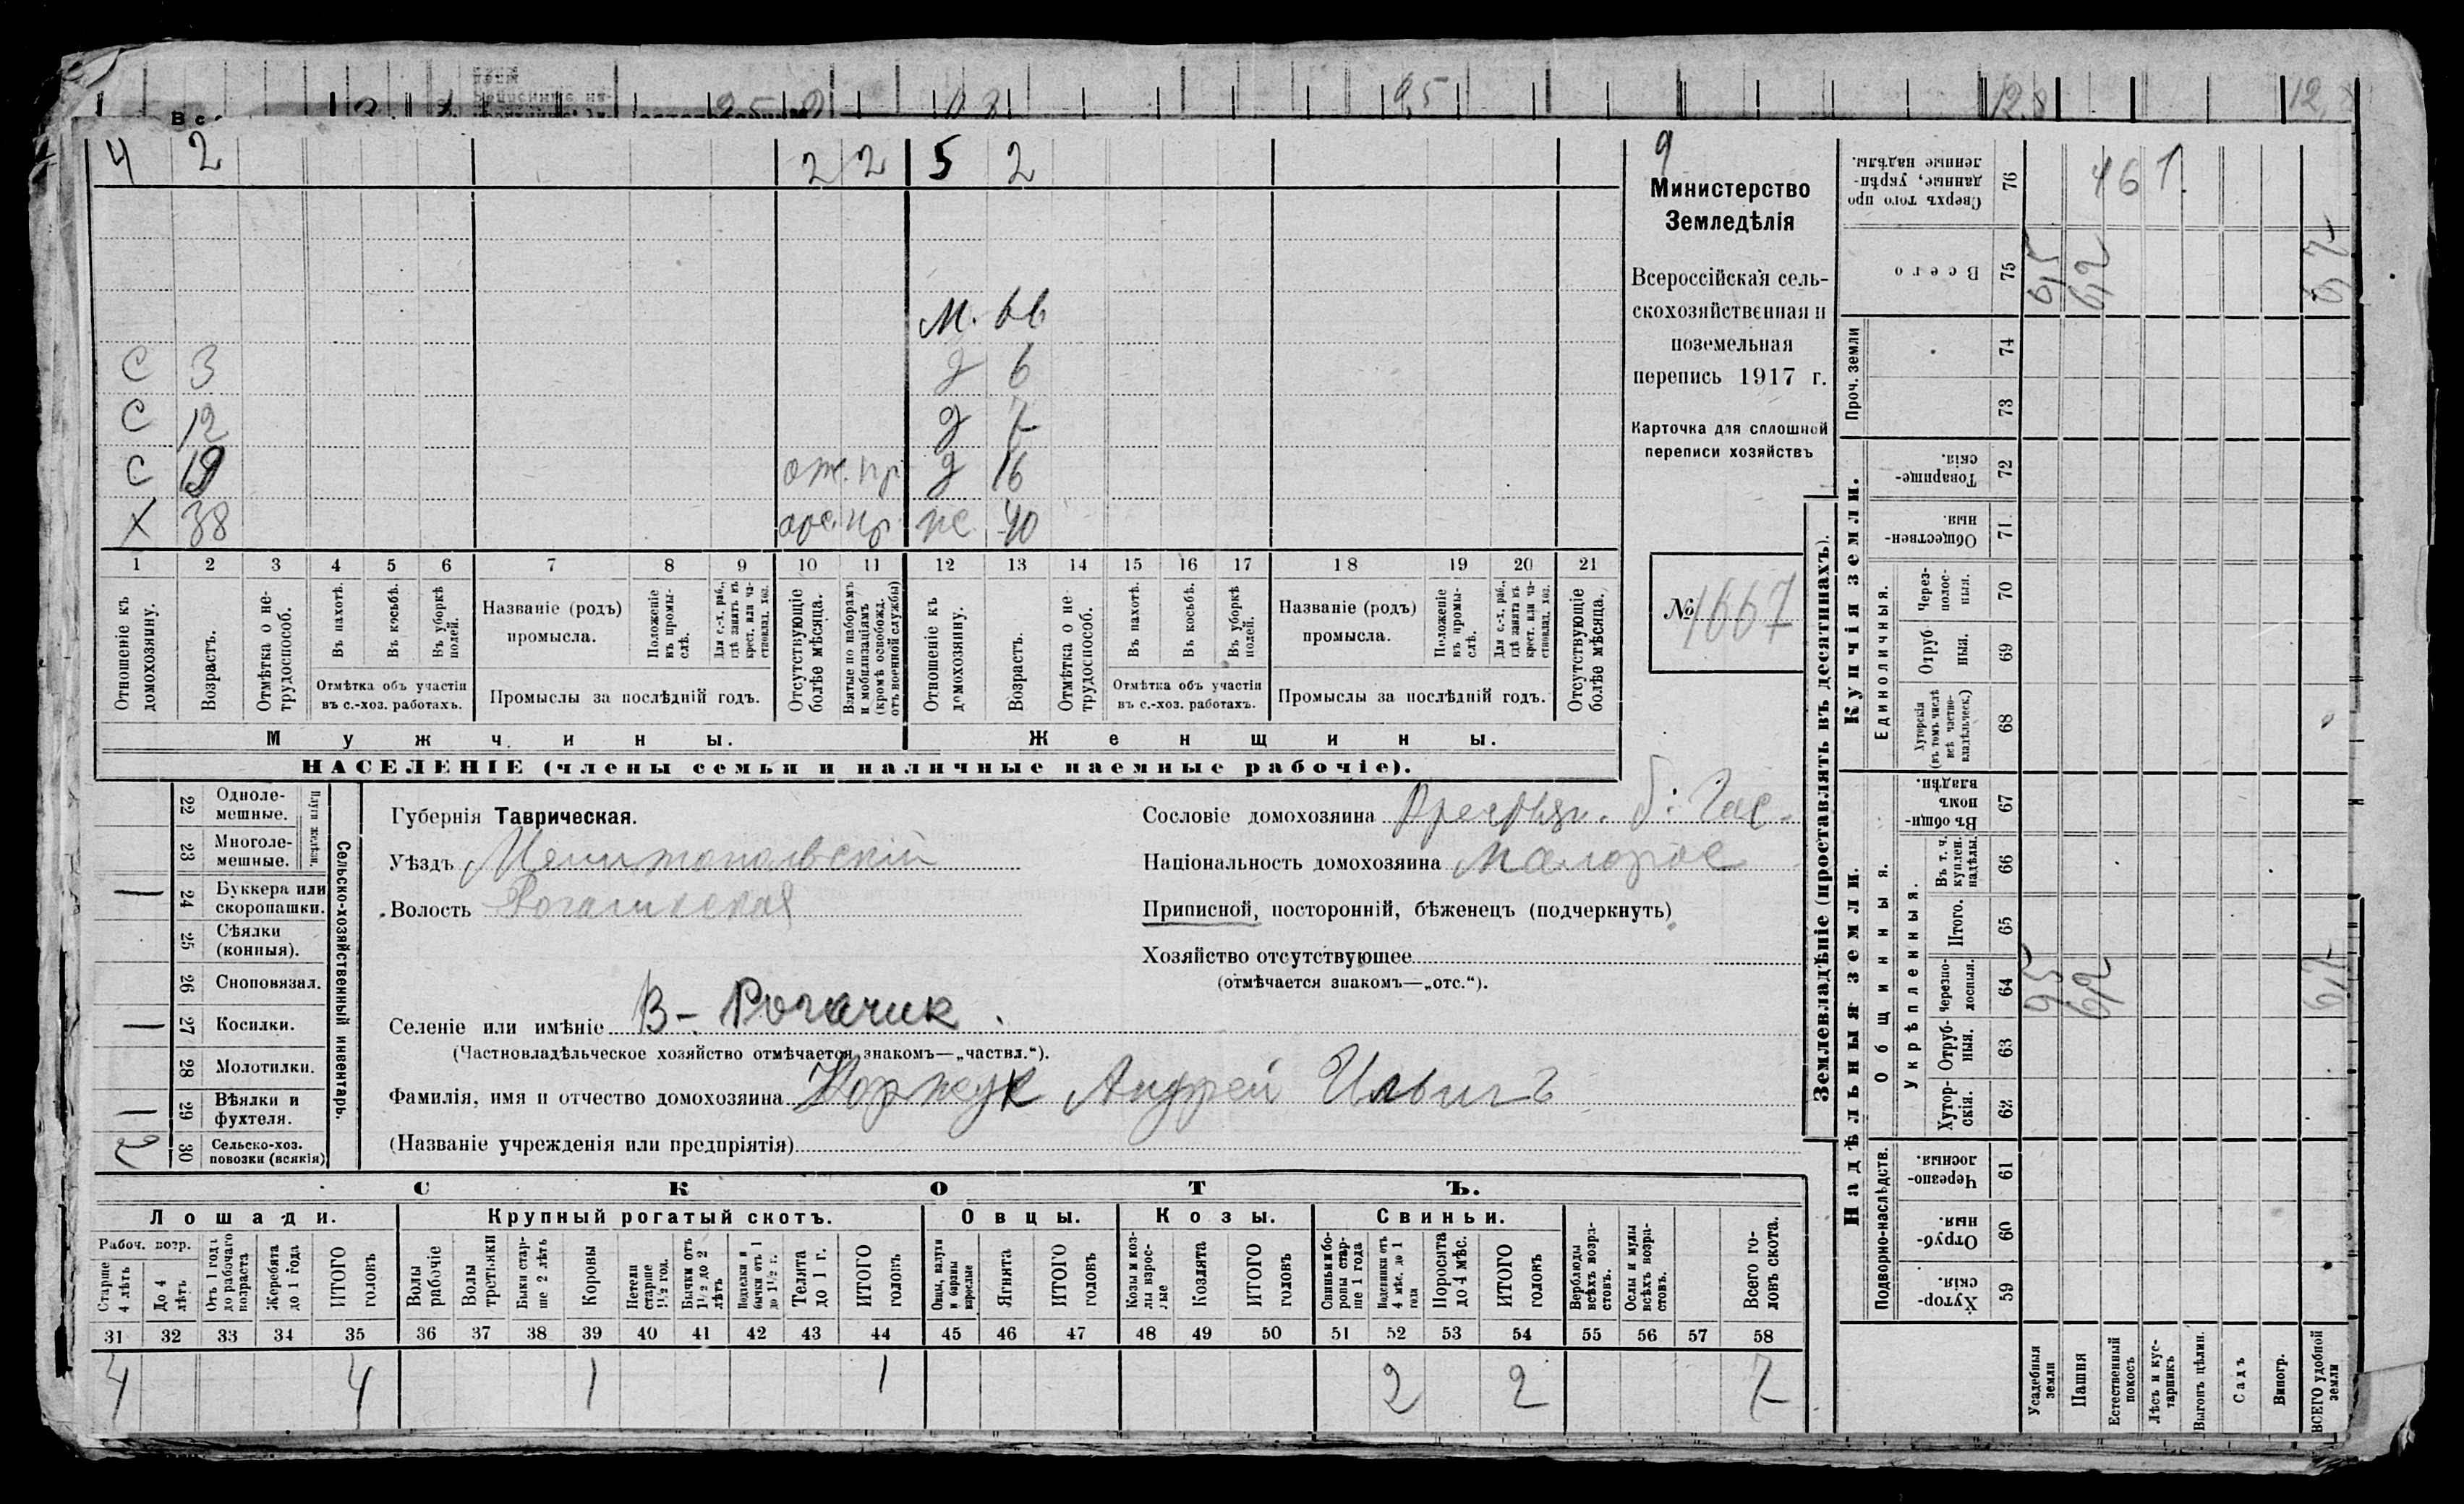 12,8
12,8
4 2 2 2 5 2 9
М. 66
С 3 д 6
С 12 д 7
С 19 отс. пр д 16
Х 38 отс. пр. же 40
1 2 3 4 5 6 7 8 9 10 11 12 13 14 15 16 17 18 19 20 21
Отношеніе къ домохозяину.
Возрастъ.
Отмѣтка о не-трудоспособ.
Въ пахотѣ.
Въ косьбѣ.
Въ уборкѣ полей.
Отмѣтка объ участіи въ с.-хоз. работахъ.
Названіе (родъ) промысла.
Положеніе въ промы-слѣ.
Для с.-х. раб., гдѣ занятъ въ крест. или ча-стновлад. хоз.
Промыслы за послѣдній годъ.
Отсутствующіе болѣе мѣсяца.
Взятые по наборамъ и мобилизаціямъ (кромѣ освобожд. отъ военной службы)
Отношеніе къ домохозяину.
Возрастъ.
Отмѣтка о не-трудоспособ.
Въ пахотѣ.
Въ косьбѣ.
Въ уборкѣ полей.
Отмѣтка объ участіи въ с.-хоз. работахъ.
Названіе (родъ) промысла.
Положеніе въ промы-слѣ.
Для с.-х. раб., гдѣ занята въ крест. или ча-стновлад. хоз.
Промыслы за послѣдній годъ.
Отсутствующіе болѣе мѣсяца.
Мужчины. Женщины.
НАСЕЛЕНІЕ (члены семьи и наличные наемные рабочіе).
Министерство
Земледѣлія
Всероссійская сель-
скохозяйственная и
поземельная
перепись 1917 г.
Карточка для сплошной
переписи хозяйствъ
№ 1667
22 Одноле-мешные.
23 Многоле-мешные.
Плуги желѣзн.
| 24 Буккера или скоропашки.
25 Сѣялки (конныя).
26 Сноповязал.
| 27 Косилки.
28 Молотилки.
| 29 Вѣялки и фухтеля.
2 30 Сельско-хоз. повозки (всякія)
Сельско-хозяйственный инвентарь.
Губернія Таврическая.
Уѣздъ Мелитопольскій
Волость Рогачикская
Селеніе или имѣніе В-Рогачик.
(Частновладѣльческое хозяйство отмѣчается знакомъ—„частвл.“).
Фамилія, имя и отчество домохозяина Коржук Андрей Ильичъ
(Названіе учрежденія или предпріятія)
Сословіе домохозяина Крестьян. б. Гос.
Національность домохозяина Малорос
Приписной, посторонній, бѣженецъ (подчеркнуть)
Хозяйство отсутствующее
(отмѣчается знакомъ—„отс.“).
СКОТЪ.
Лошади. Крупный рогатый скотъ. Овцы. Козы. Свиньи.
Рабоч. возр.
Старше 4 лѣтъ
До 4 лѣтъ
Отъ 1 года до рабочаго возраста
Жеребята до 1 года
ИТОГО головъ
Волы рабочіе
Волы третьяки
Быки стар-ше 2 лѣтъ
Коровы
Нетели старше 1½ год.
Бычки отъ 1½ до 2 лѣтъ
Подѣлки и бычки отъ 1 до 1½ г.
Телята до 1 г.
ИТОГО головъ
Овцы, валухи и бараны взрослые
Ягнята
ИТОГО головъ
Козы и коз-лы взрос-лые
Козлята
ИТОГО головъ
Свиньи и бо-ровы стар-ше 1 года
Подсвинки отъ 4 мѣс. до 1 года
Поросята до 4 мѣс.
ИТОГО головъ
Верблюды всѣхъ возра-стовъ.
Ослы и мулы всѣхъ возра-стовъ.
Всего го-ловъ скота.
31 32 33 34 35 36 37 38 39 40 41 42 43 44 45 46 47 48 49 50 51 52 53 54 55 56 57 58
4 4 1 1 2 2 7
Землевладѣніе (проставлять въ десятинахъ).
Надѣльныя земли.
Купчія земли.
Проч. земли
Сверхъ того про-данные, укрѣп-ленные надѣлы. 76
Всего 75
74
73
Товарище-скія. 72
Обществен-ныя. 71
Единоличныя.
Через-полос-ныя. 70
Отруб-ныя. 69
Хуторскія (въ томъ числѣ всѣ частно-владѣльческ.) 68
Въ общин-номъ владѣн. 67
Общинныя.
Укрѣпленныя.
Въ т. ч. куплен. надѣлы. 66
Итого. 65
Черезпо-лосныя. 64
Отруб-ныя. 63
Хутор-скія. 62
Подворно-наслѣдств.
Черезпо-лосныя. 61
Отруб-ныя. 60
Хутор-скія. 59
Усадебныя земли
Пашня
Естественный покосъ
Лѣсъ и кус-тарникъ
Выгонъ цѣлин.
Садъ
Виногр.
ВСЕГО удобной земли
461.
6,2
6,7
6,2
6,7